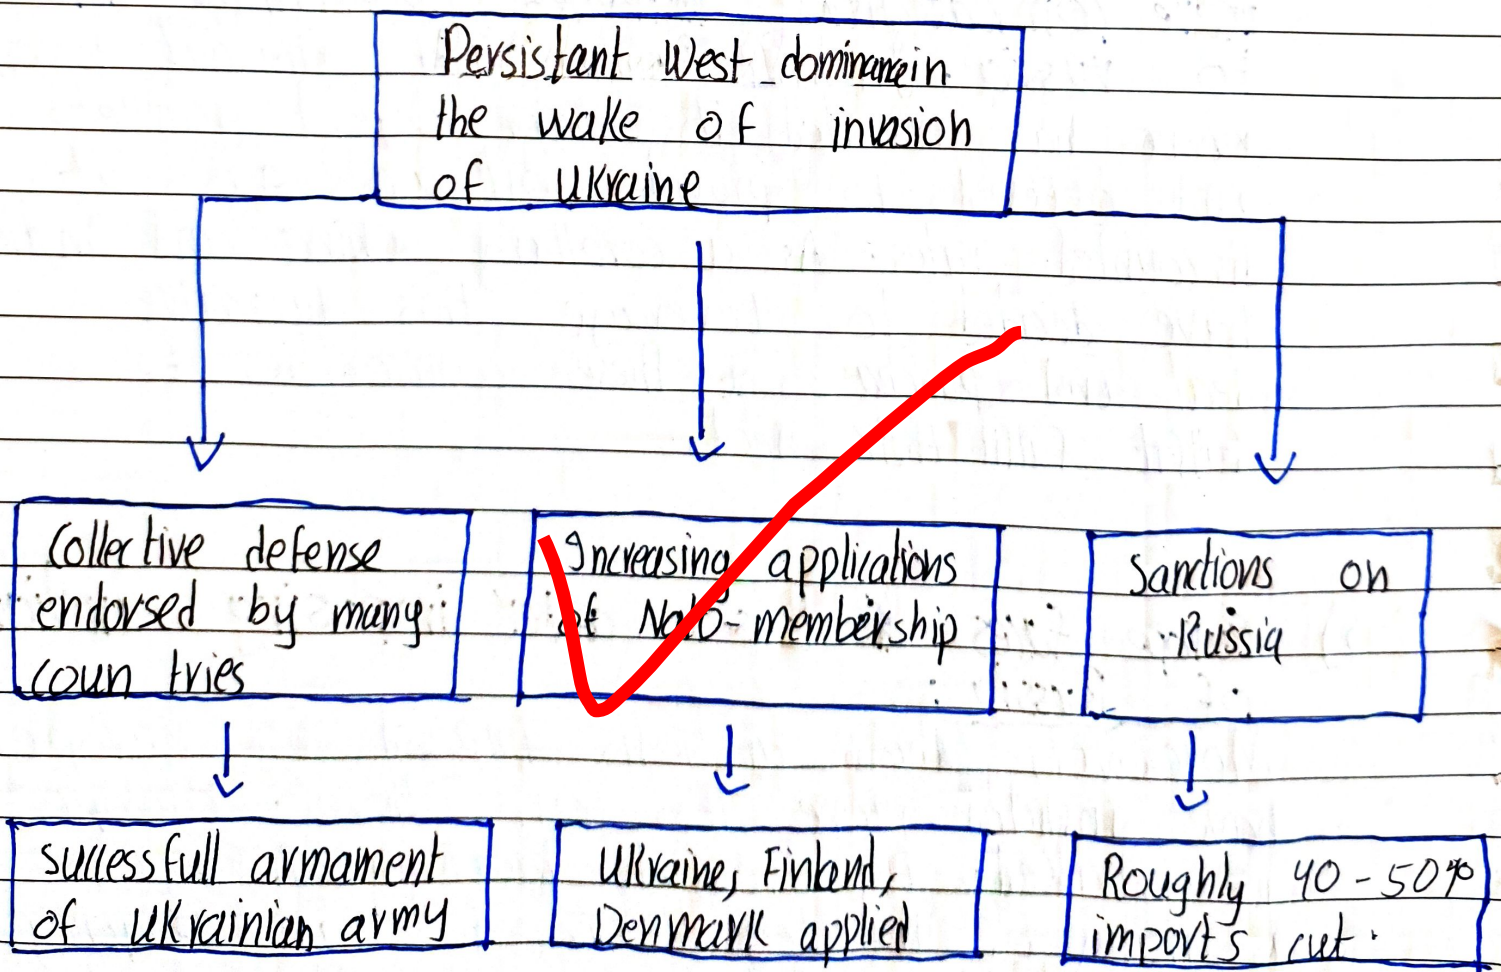 Persistant West dominance in
the wake of invasion
of Ukraine
Collective defense
endorsed by many
coun tries
Increasing applications
of Nato-membership
Sanctions on
Russia
successfull armament
of Ukrainian army
Ukraine, Finland,
Denmark applied
Roughly 40-50%
imports cut.